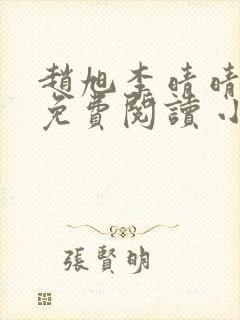 趙旭李晴晴
免費閱讀小
張賢明